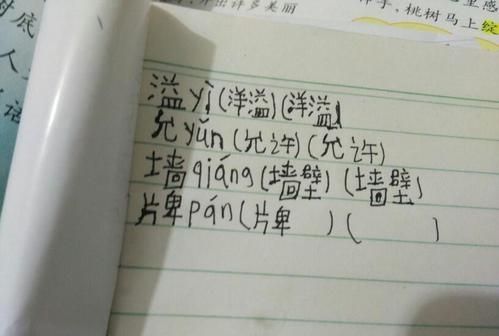 开出许多美丽
桃树马上绽
溢yì(洋溢)(洋溢)
允yǔn(允许)(允许)
墙qiáng(墙壁)(墙壁)
牌pán(牌 )( )